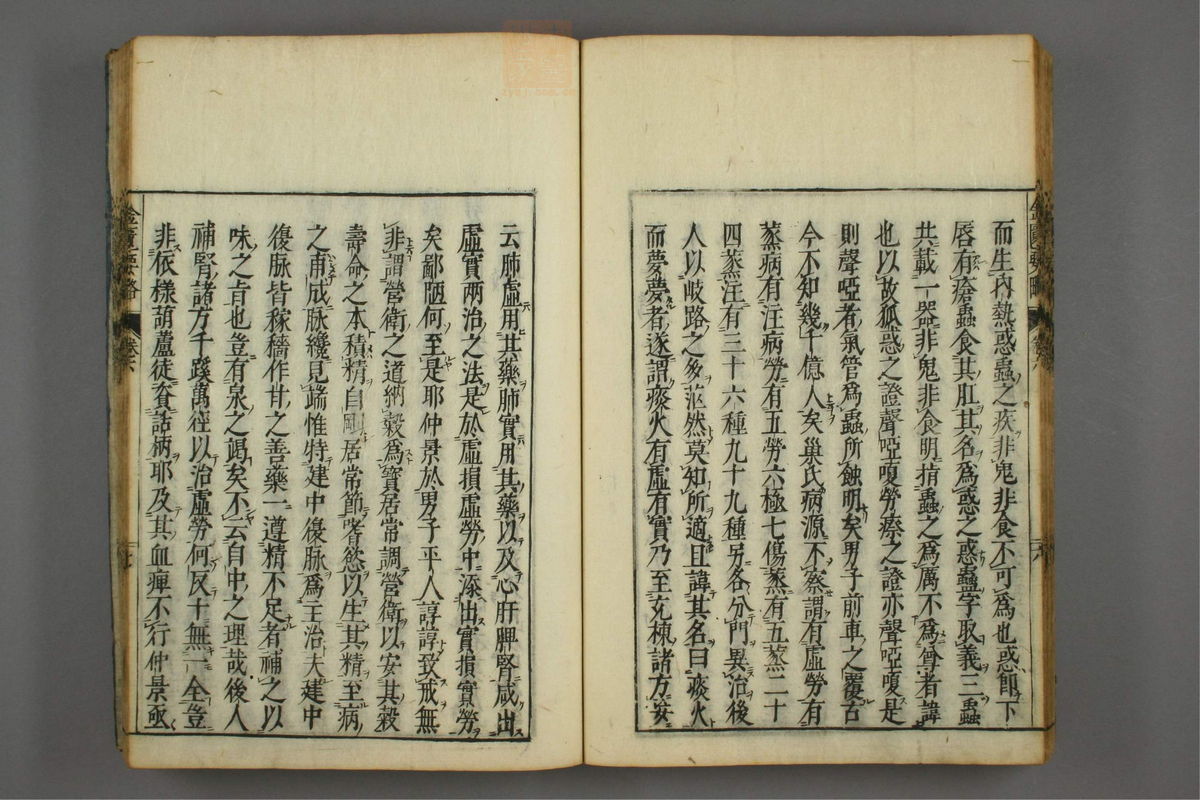 而生内熱惑蟲之疾非鬼非食不可爲也惑卽下
唇有瘡蟲食其肛其名爲惑之惑蠱字取義三蟲
共載一器非鬼非食明指蟲之爲厲不爲督者諱
也以故狐惑之證聲啞嗄勞瘵之證亦聲啞嗄是
則聲啞者氣管爲蟲所蝕明矣男子前車之覆古
今不知幾千億人矣巢氏病源不察謂有虛勞有
蒸病有注病勞有五勞六極七傷蒸有五蒸二十
四蒸注有三十六種九十九種另各分門異治後
人以岐路之多茫然莫知所適且諱其名曰痰火
而夢夢者遂謂痰火有虛有實乃至充棟諸方妄
云肺虛用其藥肺實用其藥以及心肝脾腎咸出
虛實兩治之法是於虛損虛勞中添出實損實勞
矣鄙陋何至是耶仲景於男子平人諄諄致戒無
非謂營衛之道納穀爲寳居常調營衛以安其穀
壽命之本積精自剛居常節嗜慾以生其精至病
之甫成脉纔見端惟特建中復脉爲主治夫建中
復脉皆稼穡作甘之善藥一遵精不足者補之以
味之㫖也豈有泉之竭矣不云自中之理哉後人
補腎諸方千蹊萬徑以治虛勞何反十無一全豈
非依樣葫蘆徒資話柄耶及其血痺不行仲景亟
金匱要略
卷六